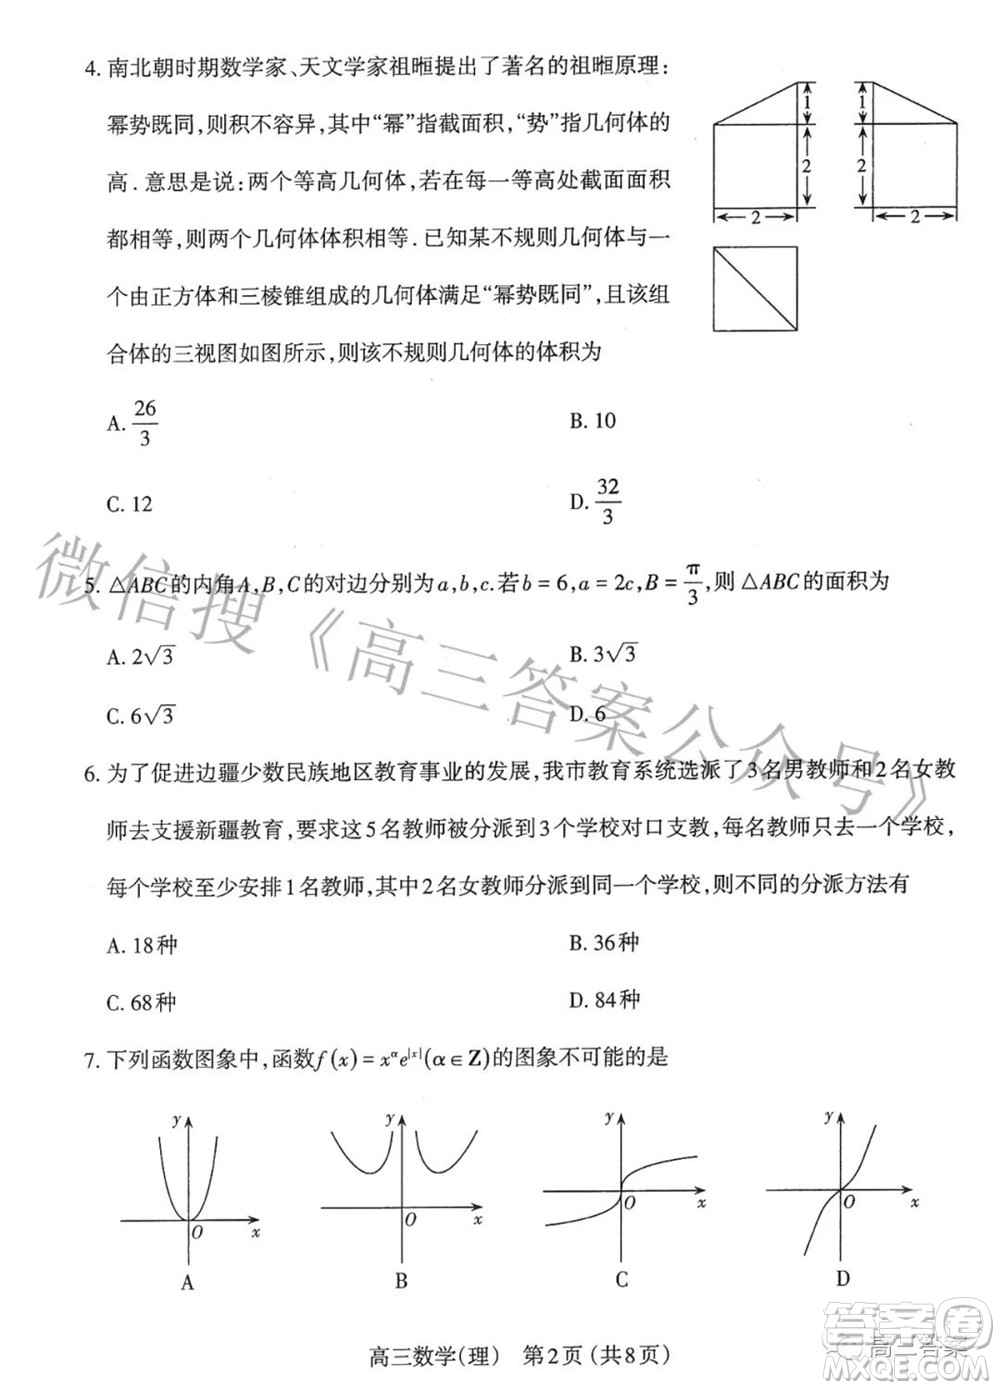 4. 南北朝时期数学家、天文学家祖暅提出了著名的祖暅原理：
幂势既同，则积不容异，其中“幂”指截面积，“势”指几何体的
高．意思是说：两个等高几何体，若在每一等高处截面面积
都相等，则两个几何体体积相等．已知某不规则几何体与一
个由正方体和三棱锥组成的几何体满足“幂势既同”，且该组
合体的三视图如图所示，则该不规则几何体的体积为
1
2
2
1
2
2
A. 26/3
B. 10
C. 12
D. 32/3
5. △ABC的内角A,B,C的对边分别为a,b,c.若b=6,a=2c,B=π/3,则△ABC的面积为
A. 2√3
B. 3√3
C. 6√3
D. 6
6. 为了促进边疆少数民族地区教育事业的发展，我市教育系统选派了3名男教师和2名女教
师去支援新疆教育，要求这5名教师被分派到3个学校对口支教，每名教师只去一个学校，
每个学校至少安排1名教师，其中2名女教师分派到同一个学校，则不同的分派方法有
A. 18种
B. 36种
C. 68种
D. 84种
7. 下列函数图象中，函数f(x)=x^α e^|x|(α∈Z)的图象不可能的是
y
O
x
A
y
O
x
B
y
O
x
C
y
O
x
D
高三数学(理) 第2页(共8页)
微信搜《高三答案公众号》
答案圈
高三答案
MXQE.COM